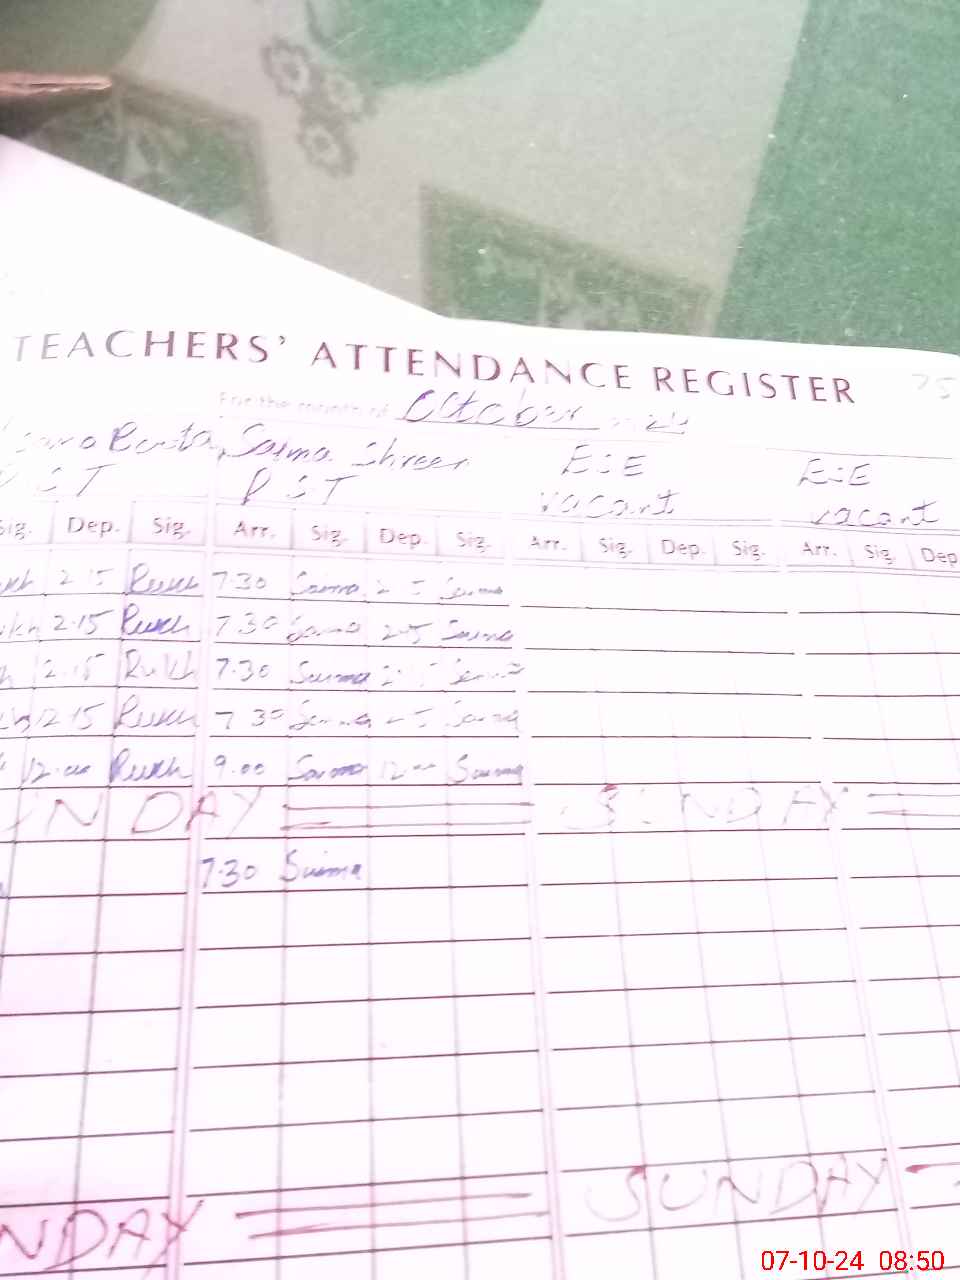 TEACHERS' ATTENDANCE REGISTER
For the month of October 24
Saima Shreen E:E E:E
P S T vacant vacant
Sig. Dep. Sig. Arr. Sig. Dep. Sig. Arr. Sig. Dep. Sig. Arr. Sig. Dep
2.15 Rukh 7.30 Saima Saima
2.15 Rukh 7.30 Saima 2.15 Saima
2.15 Rukh 7.30 Saima Saima
12 15 Rukh 7 30 Saima Saima
12.00 Rukh 9.00 Saima 12 00 Saima
NDAY SUNDAY
7.30 Saima
NDAY SUNDAY
07-10-24 08:50